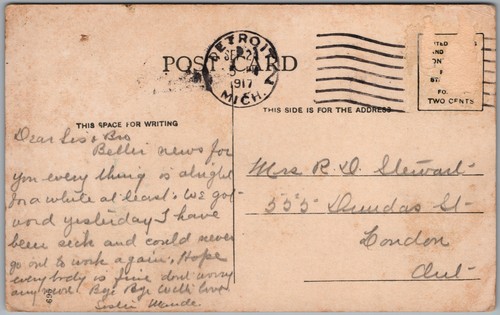 POST CARD
DETROIT
SEP 2
1917
MICH.
FO
TWO CENTS
THIS SPACE FOR WRITING
THIS SIDE IS FOR THE ADDRESS
Dear Sis & Bro
Better news for
you every thing is alright
for a while at least. We got
word yesterday I have
been sick and could never
go out to work again. Hope
everybody is fine dont worry
any more. Bye Bye With love
Sister Maude
Mrs R. D. Stewart
555 Dundas St
London
Ont